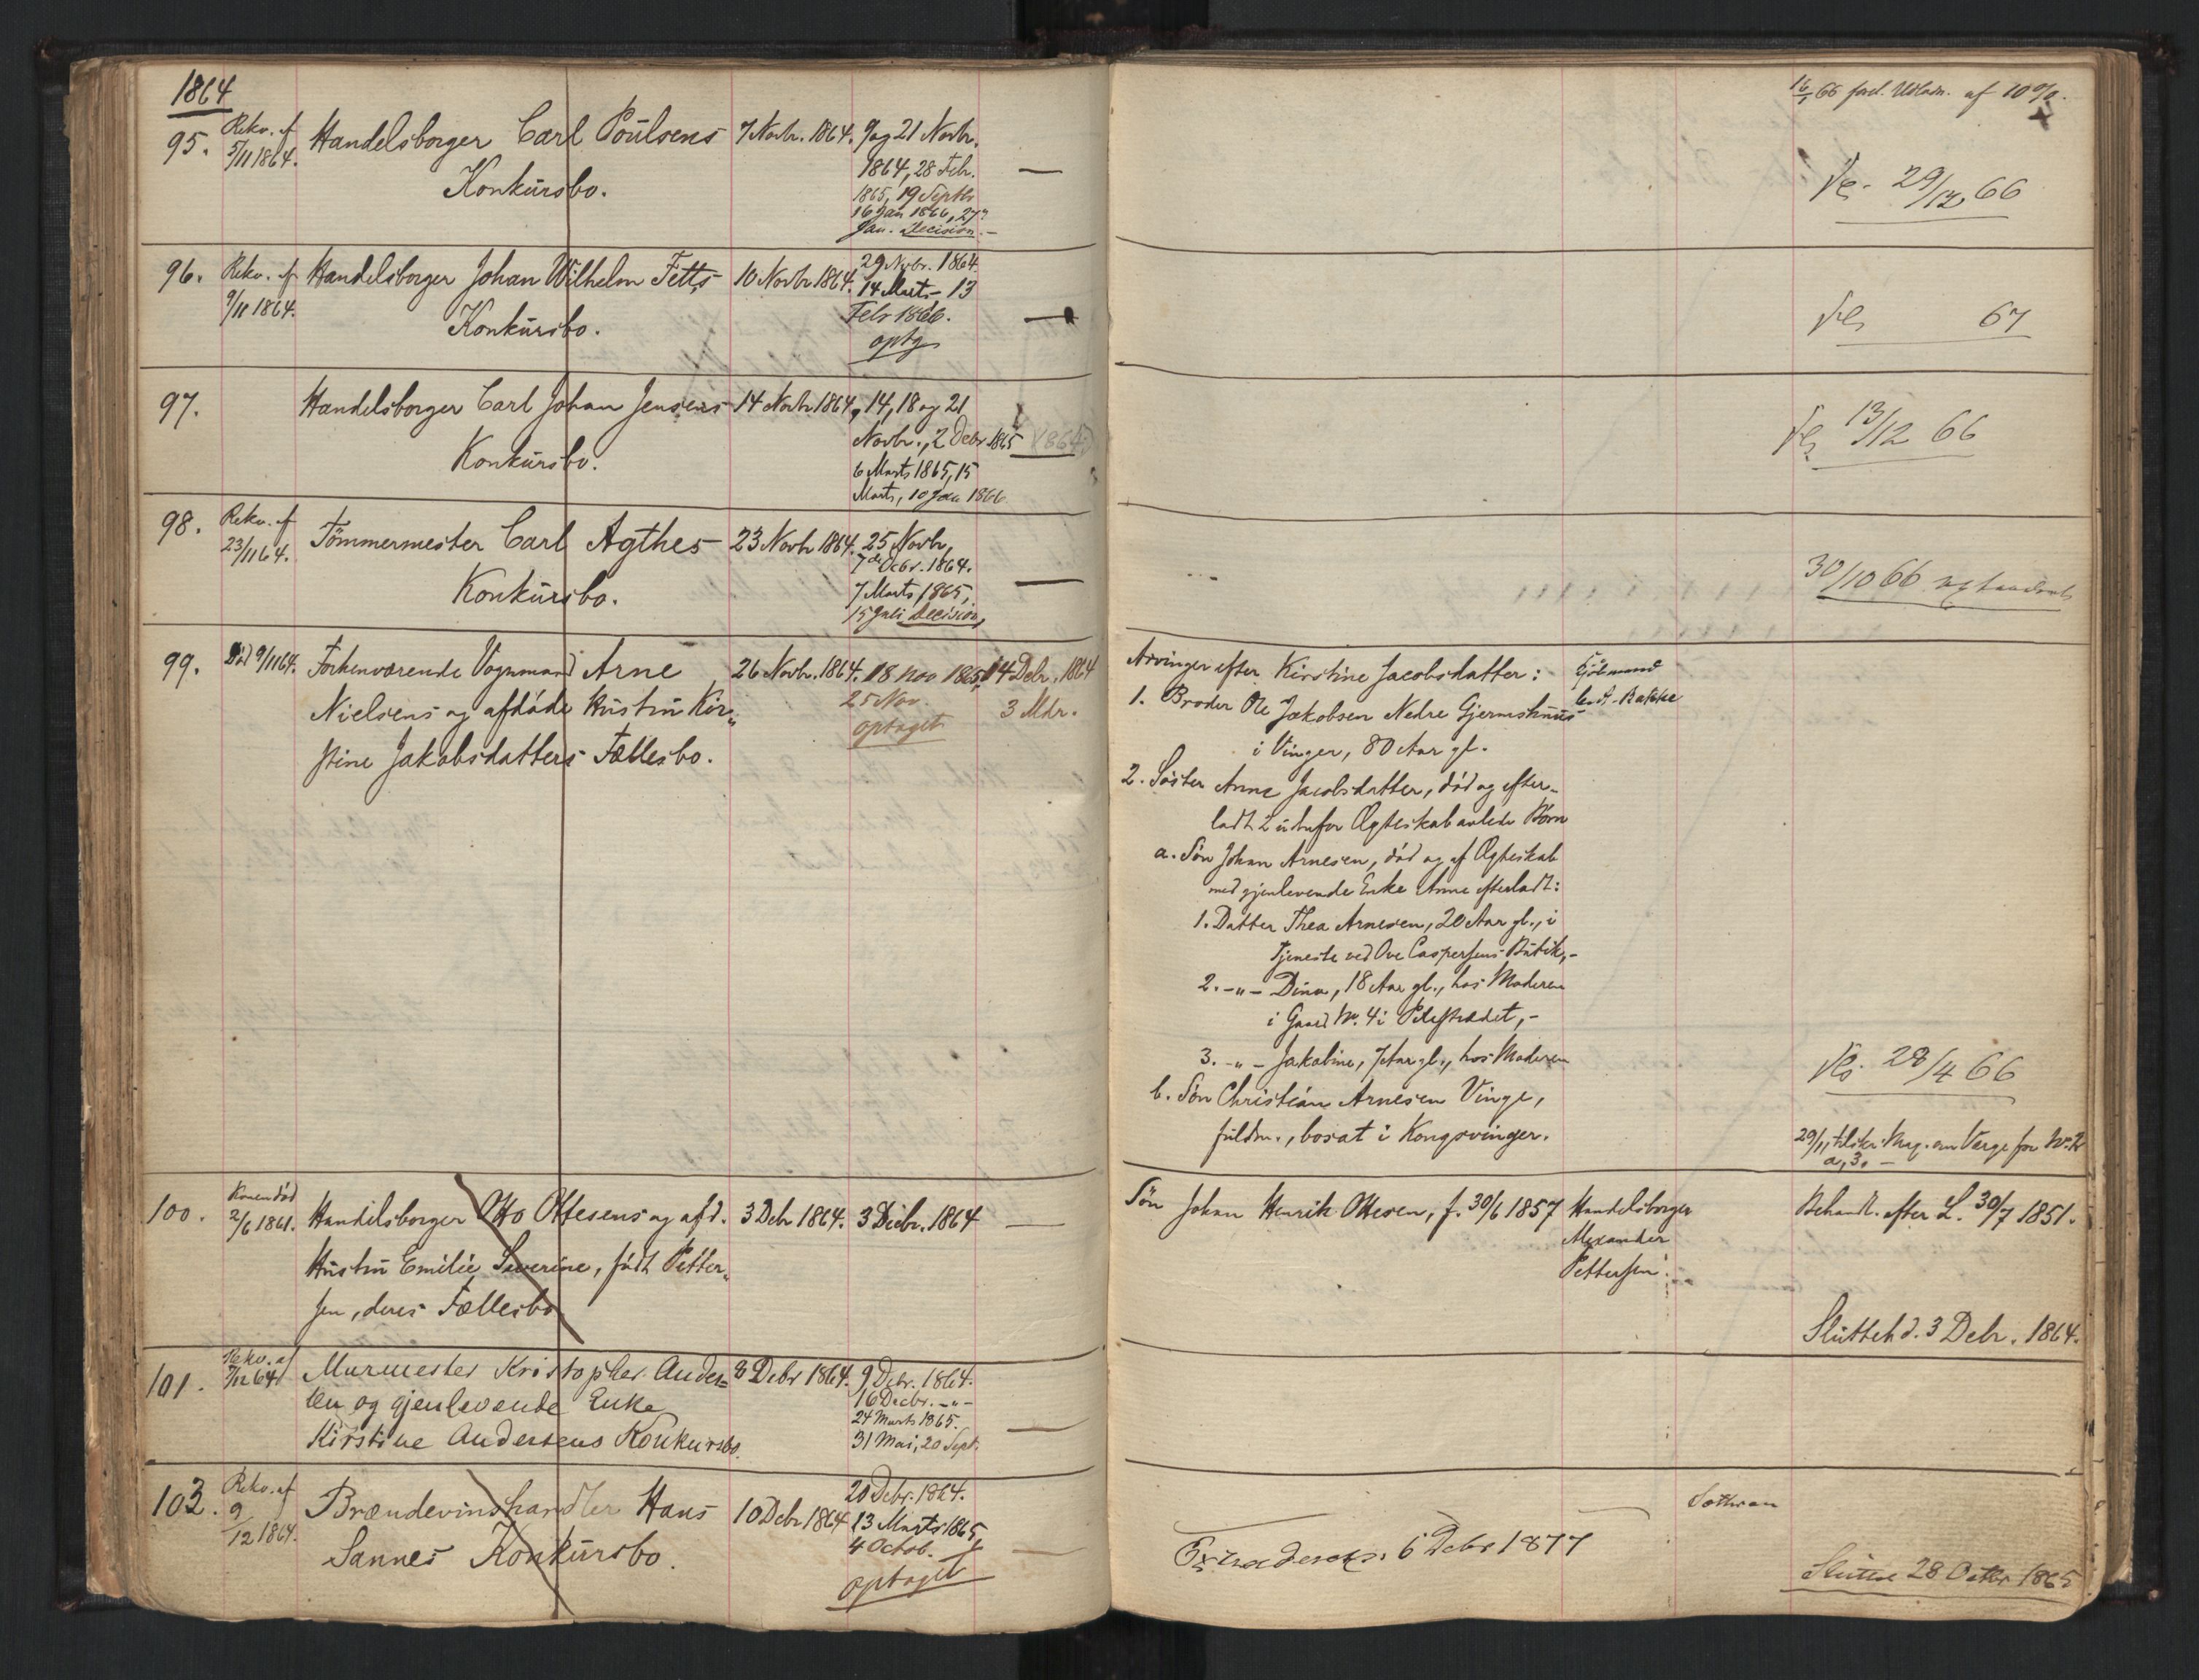 1864
95. Rekv. af 5/11 1864. Handelsborger Carl Poulsens 7 Novbr. 1864. 9 og 21 Novbr.
Konkursbo. 1864, 28 Febr. —
1865, 19 Septbr
16 Jan 1866, 27
Jan. Decision. —
96. Rekv. af 9/11 1864. Handelsborger Johan Wilhelm Fetts 10 Novbr 1864. 29 Nvbr. 1864.
Konkursbo. 14 Marts — 13
Febr 1866. —
optg
97. Handelsborger Carl Johan Jensens 14 Novbr 1864, 14, 18 og 21
Konkursbo. Novbr., 2 Debr 1865 (1864)
6 Marts 1865, 15
Marts, 10 Jan 1866
98. Rekv. af 23/11 64. Tömmermester Carl Agthes 23 Novbr 1864. 25 Novbr,
Konkursbo. 7de Decbr. 1864.
7 Marts 1865, —
15 Juli Decision,
99. Död 9/11 64. Forhenværende Vognmand Arne 26 Novbr. 1864. 18 Nov 1865, 14 Debr. 1864
Nielsens og afdöde Hustru Kir„ 25 Nov. 3 Mdr.
stine Jakobsdatters Fællesbo. optaget
100. Konen död 2/6 1861. Handelsborger Otto Ottesens og afd. 3 Debr 1864. 3 Decbr. 1864 —
Hustru Emilie Severine, födt Petter„
sen, deres Fællesbo
101. Rekv. af 7/12 64 Murmester Kristopher Ander= 8 Debr 1864. 9 Debr. 1864.
sen og gjenlevende Enke 16 Decbr. -„-
Kirstine Andersens Konkursbo. 24 Marts 1865. —
31 Mai, 20 Sept.
102. Rekv. af 9/12 1864. Brændevinshandler Hans 10 Debr 1864 20 Debr. 1864.
Sannes Konkursbo. 13 Marts 1865,
4 Octob. —
optaget
16/1 66 ford. Udlodn. af 10%.
29/12 66
67
13/12 66
30/10 66
Arvinger efter Kirstine Jacobsdatter:
1. Broder Ole Jakobsen Nedre Gjermshuus
i Vinger, 80 Aar gl.
2. Söster Anne Jacobsdatter, död og efter-
ladt 2 udenfor Ægteskab avlede Börn
a. Sön Johan Arnesen, död og af Ægteskab
med gjenlevende Enke Anne efterladt:
1. Datter Thea Arnesen, 20 Aar gl., i
Tjeneste ved Ove Caspersens Butik, -
2. -„- Dina, 18 Aar gl., hos Moderen
i Gaard No. 4 i Pilestrædet, -
3. -„- Jakobine, 7 Aar gl., hos Moderen
b. Sön Christian Arnesen Vinge,
fuldm., bosat i Kongsvinger.
28/4 66
29/11 tilskr. Mag. om Verge for No. 2
a, 3. —
Sön Johan Henrik Ottesen, f. 30/6 1857 Handelsborger
Alexander
Pettersen.
Behandl. efter L. 30/7 1851.
Sluttet d. 3 Debr. 1864.
6 Debr 1877
Sluttet 28 Octbr 1865